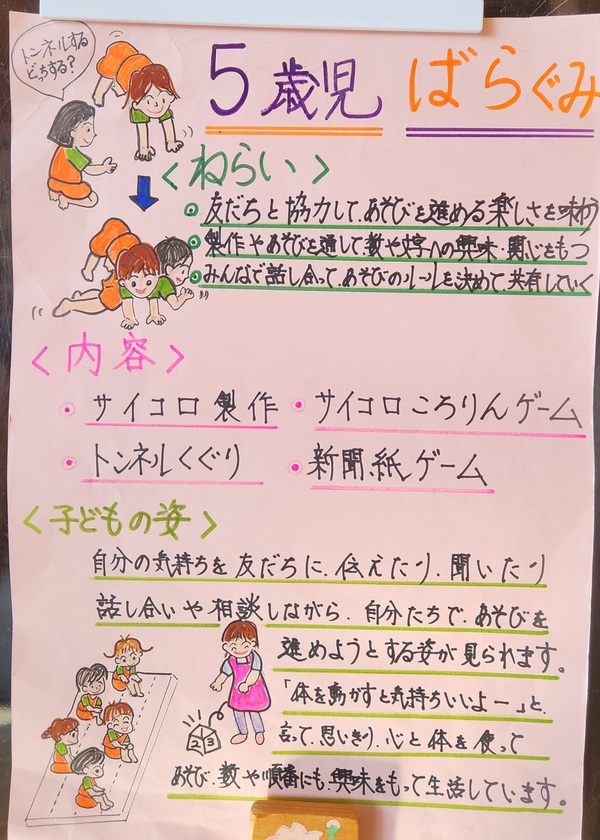 トンネルする
どっちする?
5歳児 ばらぐみ
<ねらい>
友だちと協力して、あそびを進める楽しさを味わう
製作やあそびを通して数や文字への興味・関心をもつ
みんなで話し合って、あそびのルールを決めて、共有していく
<内容>
・サイコロ製作
・サイコロころりんゲーム
・トンネルくぐり
・新聞紙ゲーム
<子どもの姿>
自分の気持ちを友だちに、伝えたり、聞いたり
話し合いや相談しながら、自分たちで、あそびを
進めようとする姿が見られます。
「体を動かすと気持ちいいよー」と、
言って、思いきり、心と体を使って
あそび、数や順番にも、興味をもって生活しています。
2 3